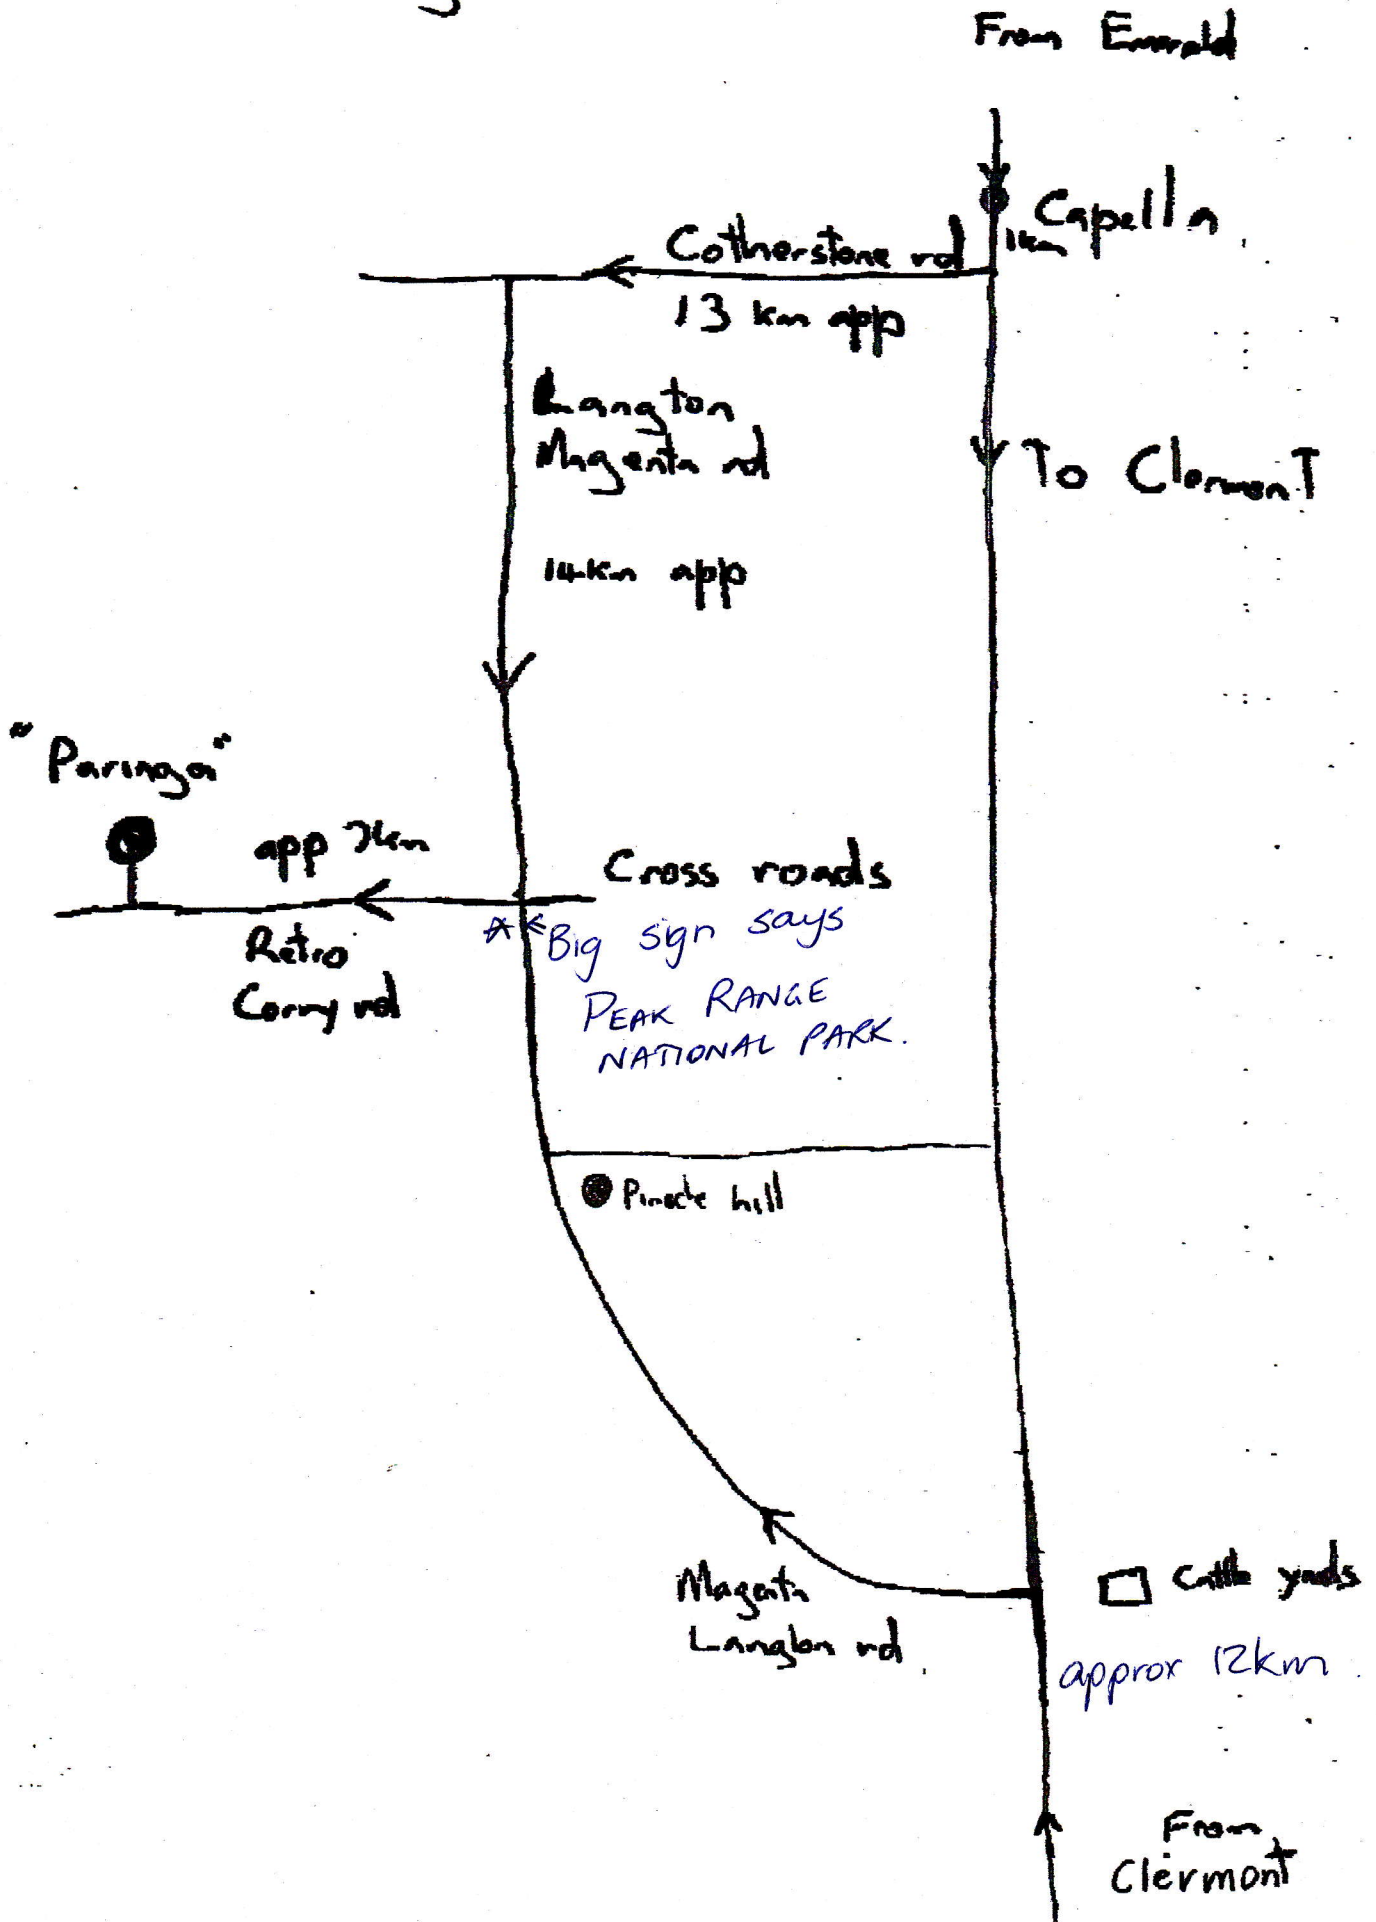 From Emerald
Capella
1km
Cotherstone rd
13 km app
Langton
Magenta rd
To Clermont
14km app
"Paringa"
app 7km
Cross roads
Retro
Corry rd
Big sign says
PEAK RANGE
NATIONAL PARK.
hill
Cattle yards
Magenta
Langton rd
approx 12km
From
Clermont